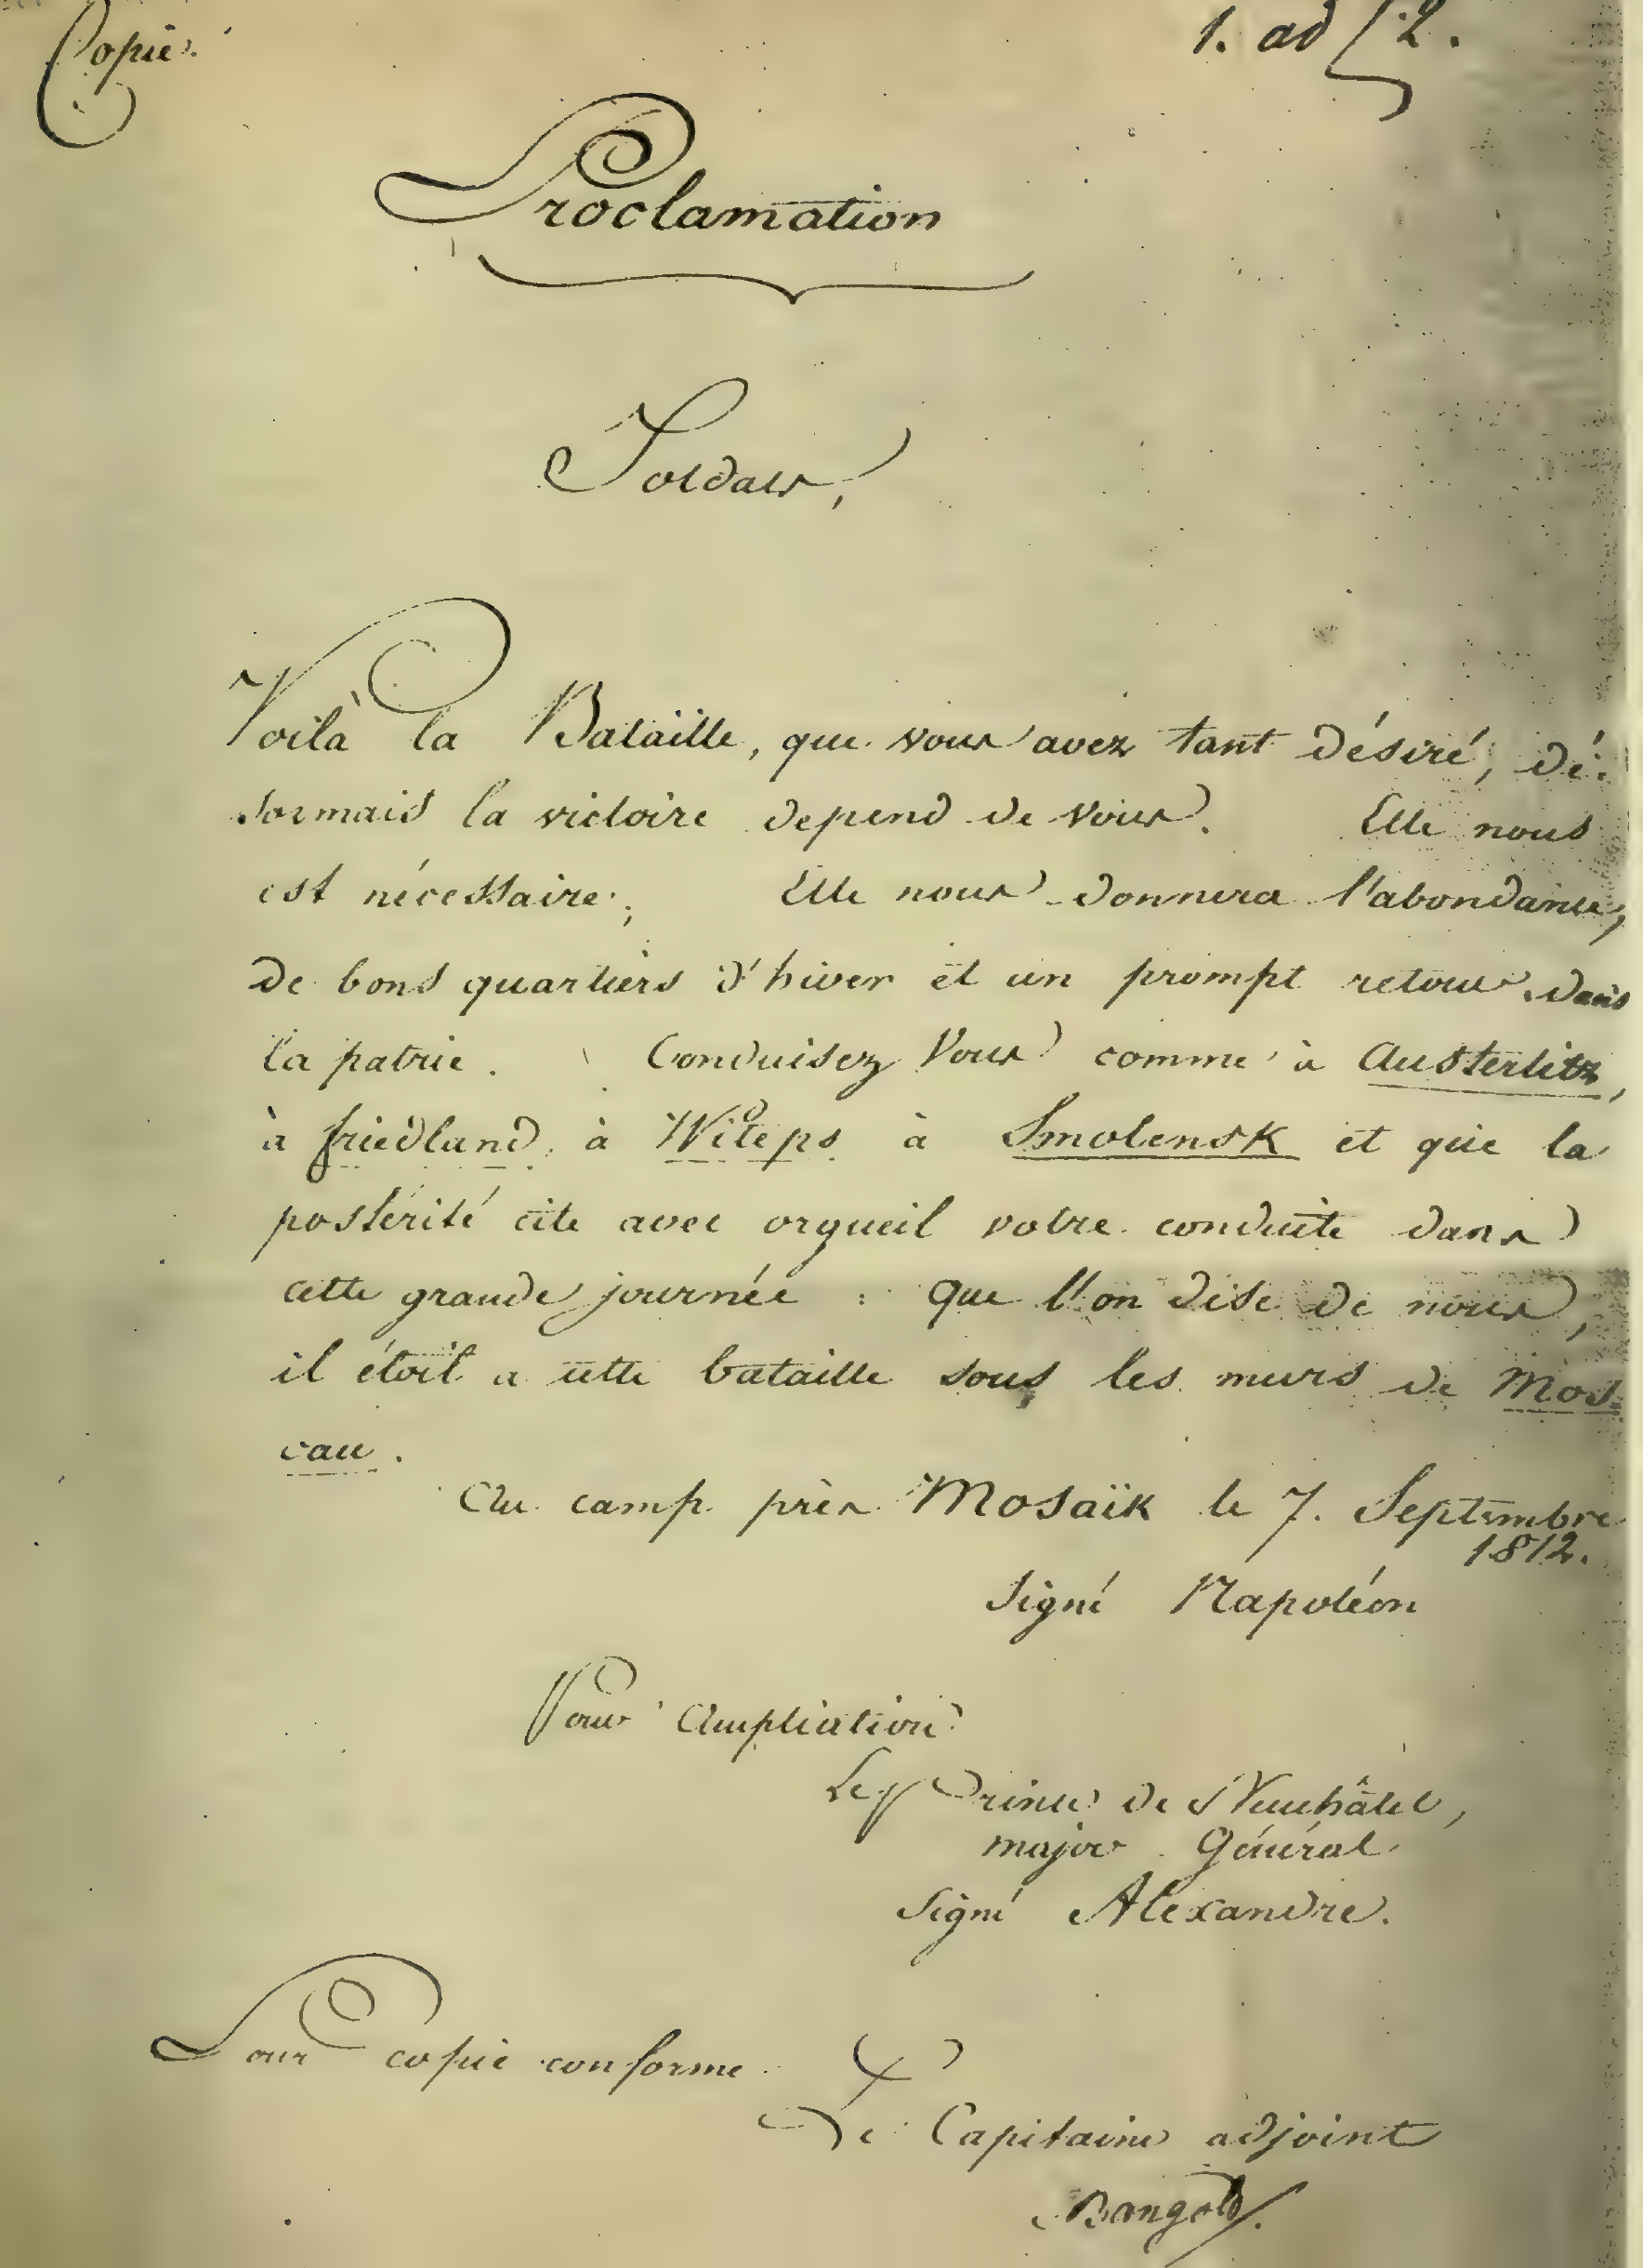 Copie.
1. ad 52.
Proclamation
Soldats,
Voilà la Bataille, que vous avez tant désiré, dé-
sormais la victoire depend de vous. Elle nous
est nécessaire; Elle nous donnera l'abondance,
de bons quartiers d'hiver et un prompt retour dans
la patrie. Conduisez Vous comme à Austerlitz,
à friedland, à Witeps à Smolensk et que la
postérité cite avec orgueil votre conduite dans
cette grande journée : que l'on dise de nous,
il étoit a cette bataille sous les murs de Mos-
cau.
Au camp près Mosaïk le 7. Septembre
1812.
Signé Napoléon
Pour Ampliation
Le Prince de Neuchâtel,
major Général
Signé Alexandre.
Pour copie conforme
Le Capitaine adjoint
Bangold.